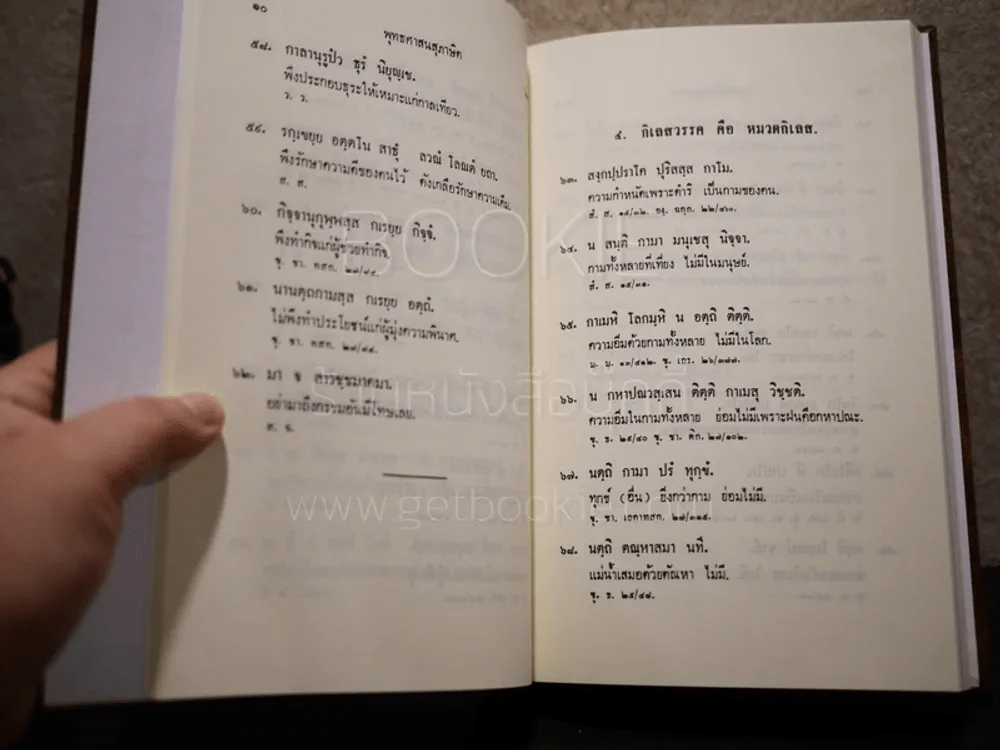 ๑๐
พุทธศาสนสุภาษิต
๕๘. กาลานุรูปํว ธุรํ นิยุญฺเช.
พึงประกอบธุระให้เหมาะแก่กาลเทียว.
ว. ว.
๕๙. รกฺเขยฺย อตฺตโน สาธุํ ลวณํ โลณตํ ยถา.
พึงรักษาความดีของตนไว้ ดังเกลือรักษาความเค็ม.
ส. ส.
๖๐. กิจฺจานุกุพฺพสฺส กเรยฺย กิจฺจํ.
พึงทำกิจแก่ผู้ช่วยทำกิจ.
ขุ. ชา. ทสก. ๒๗/๘๔.
๖๑. นานตฺถกามสฺส กเรยฺย อตฺถํ.
ไม่พึงทำประโยชน์แก่ผู้มุ่งความพินาศ.
ขุ. ชา. ทสก. ๒๗/๘๔.
๖๒. มา จ สาวชฺชมาคมา.
อย่ามาถึงกรรมอันมีโทษเลย.
ส. ฉ.
๕. กิเลสวรรค คือ หมวดกิเลส.
๖๓. สงฺกปฺปราโค ปุริสสฺส กาโม.
ความกำหนัดเพราะดำริ เป็นกามของคน.
สํ. ส. ๑๕/๓๒. องฺ. ฉกฺก. ๒๒/๔๖๐.
๖๔. น สนฺติ กามา มนุเชสุ นิจฺจา.
กามทั้งหลายที่เที่ยง ไม่มีในมนุษย์.
สํ. ส. ๑๕/๓๑.
๖๕. กาเมหิ โลกมฺหิ น อตฺถิ ติตฺติ.
ความอิ่มด้วยกามทั้งหลาย ไม่มีในโลก.
ม. ม. ๑๓/๔๑๒. ขุ. เถร. ๒๖/๓๗๗.
๖๖. น กหาปณวสฺเสน ติตฺติ กาเมสุ วิชฺชติ.
ความอิ่มในกามทั้งหลาย ย่อมไม่มีเพราะฝนคือกหาปณะ.
ขุ. ธ. ๒๕/๔๐ ขุ. ชา. ติก. ๒๗/๑๐๒.
๖๗. นตฺถิ กามา ปรํ ทุกฺขํ.
ทุกข์ (อื่น) ยิ่งกว่ากาม ย่อมไม่มี.
ขุ. ชา. เอกาทสก. ๒๗/๓๑๕.
๖๘. นตฺถิ ตณฺหาสมา นที.
แม่น้ำเสมอด้วยตัณหา ไม่มี.
ขุ. ธ. ๒๕/๔๘.